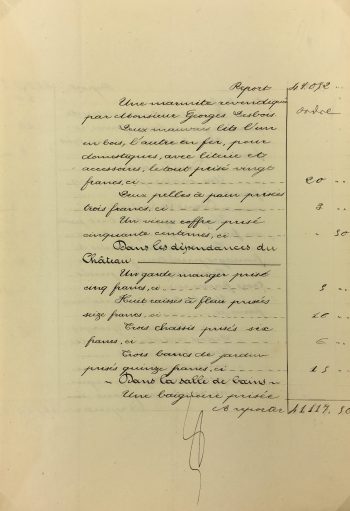 Report 41.092 "
Une marmite revendiquée
par Monsieur Georges Lesbois ordre
Deux mauvais lits l'un
en bois, l'autre en fer, pour
domestiques, avec literie et
accessoires, le tout prisé vingt
francs, ci 20 "
Deux pelles à pain prisées
trois francs, ci 3 "
Un vieux coffre prisé
cinquante centimes, ci " 50
Dans les dépendances du
Château
Un garde manger prisé
cinq francs, ci 5 "
Huit caisses à fleur prisées
seize francs, ci 16 "
Trois chassis prisés six
francs, ci 6 "
Trois bancs de jardin
prisés quinze francs, ci 15 "
Dans la salle de bains
Une baignoire prisée
A reporter 41117. 50